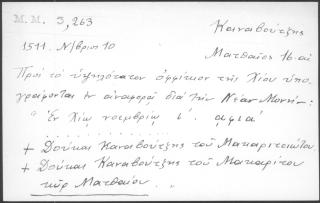 M.M. 3,263
Καναβούτζης
1511. Ν/βριο 10
Ματθαῖος 16. αἰ
Πρὸς τὸ ὑψηλότατον ὀφφίκιον τῆς Χίου ὑπο-
γράφονται ἐν ἀναφορᾷ διὰ τὴν Νέαν Μονήν:-
" Ἐν Χίῳ νοεμβρίῳ ι΄. αφια΄
+ Δούκας Καναβούτζης τοῦ Μακαριτωτάτου
+ Δούκας Καναβούτζης τοῦ Μακαρίτου
κὺρ Ματθαίου. "